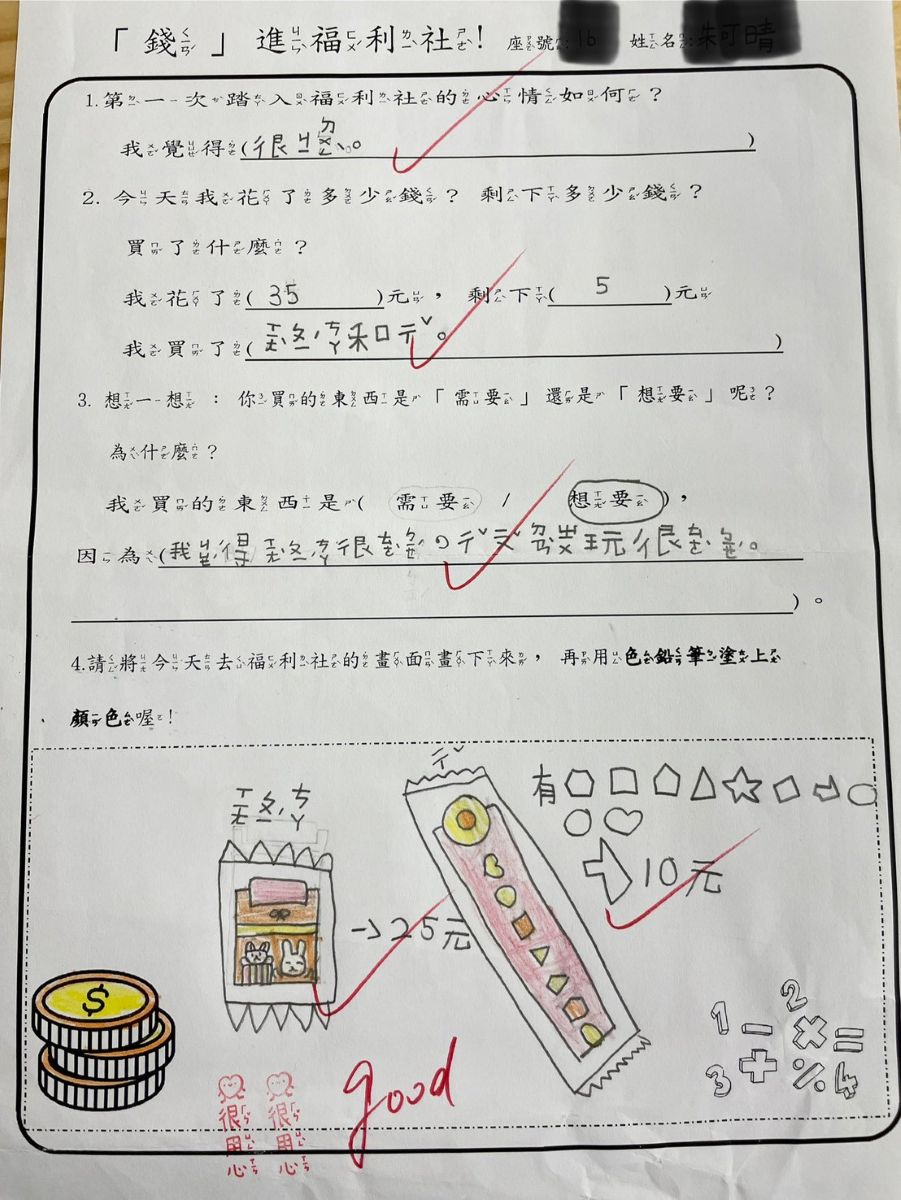 「錢」進福利社! 座號:16 姓名:朱可晴
1.第一次踏入福利社的心情如何？
我覺得(很ㄐㄧㄣˇㄓㄤ。)
2. 今天我花了多少錢？ 剩下多少錢？
買了什麼？
我花了( 35 )元， 剩下( 5 )元
我買了( 和ㄕˇ。)
3. 想一想 ： 你買的東西是「需要」還是「想要」呢？
為什麼？
我買的東西是( 需要 / 想要 )，
因為(我得很玩很。
)。
4.請將今天去福利社的畫面畫下來， 再用色鉛筆塗上
顏色喔!
有
→25元
10元
$
1 - 2 × =
3 + % 4
很用心 很用心
good